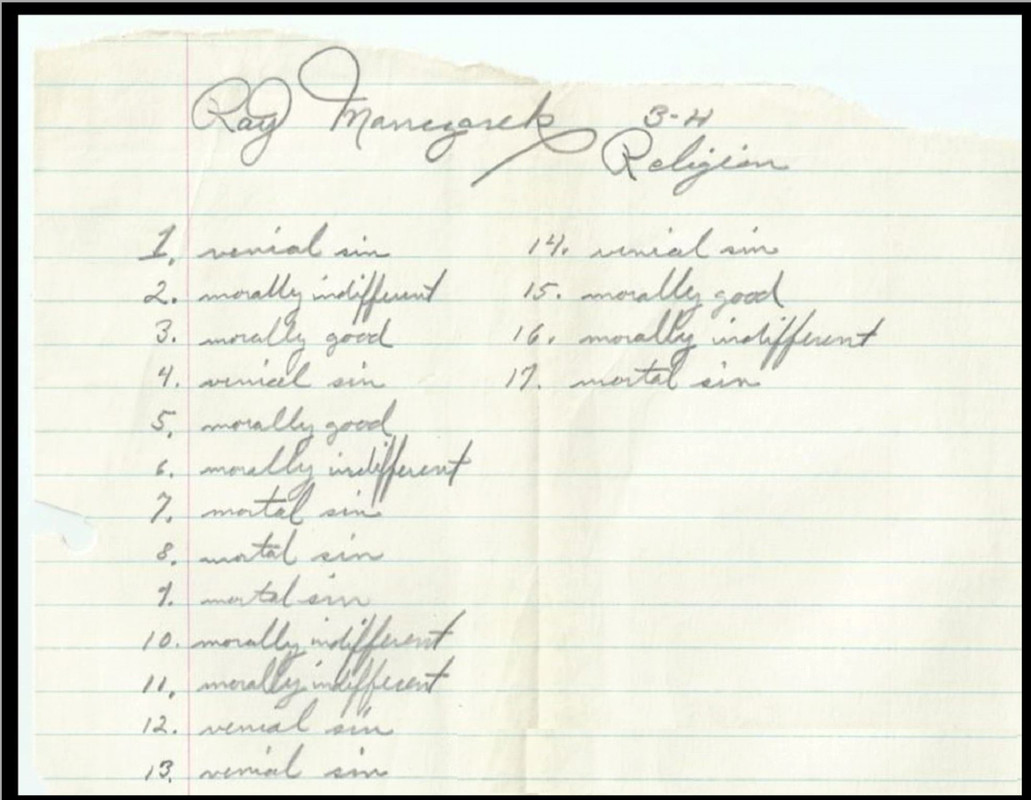 Ray Manczarek 3-H
Religion
1. venial sin
2. morally indifferent
3. morally good
4. venial sin
5. morally good
6. morally indifferent
7. mortal sin
8. mortal sin
9. mortal sin
10. morally indifferent
11. morally indifferent
12. venial sin
13. venial sin
14. venial sin
15. morally good
16. morally indifferent
17. mortal sin